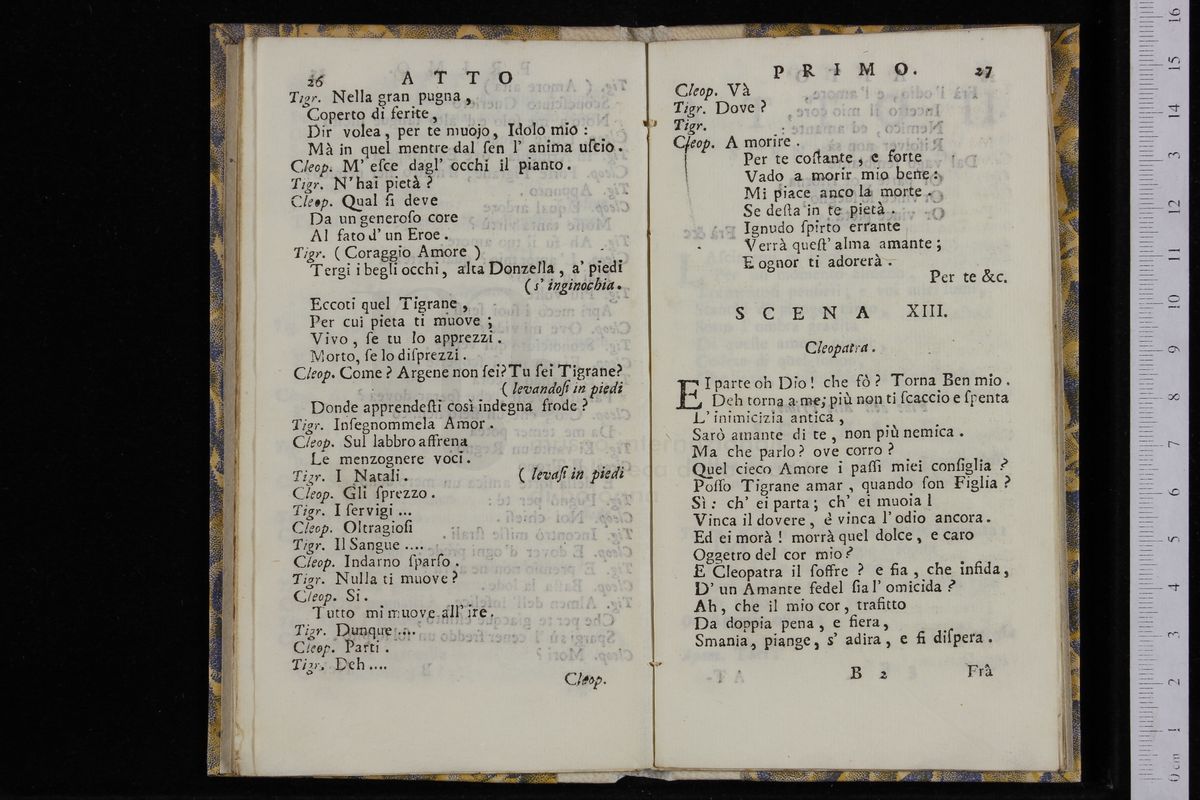 26 ATTO
Tigr. Nella gran pugna,
Coperto di ferite,
Dir volea, per te muojo, Idolo mio:
Mà in quel mentre dal ſen l' anima uſcio.
Cleop. M' eſce dagl' occhi il pianto.
Tigr. N'hai pietà?
Cleop. Qual ſi deve
Da un generoſo core
Al fato d' un Eroe.
Tigr. (Coraggio Amore)
Tergi i begli occhi, alta Donzella, a' piedi
(s' inginochia.
Eccoti quel Tigrane,
Per cui pieta ti muove;
Vivo, ſe tu lo apprezzi.
Morto, ſe lo diſprezzi.
Cleop. Come? Argene non ſei? Tu ſei Tigrane?
(levandoſi in piedi
Donde apprendeſti così indegna frode?
Tigr. Inſegnommela Amor.
Cleop. Sul labbro affrena
Le menzognere voci.
Tigr. I Natali. (levaſi in piedi
Cleop. Gli ſprezzo.
Tigr. I ſervigi ...
Cleop. Oltragioſi
Tigr. Il Sangue ....
Cleop. Indarno ſparſo.
Tigr. Nulla ti muove?
Cleop. Si.
Tutto mi muove all' ire.
Tigr. Dunque ....
Cleop. Parti.
Tigr. Deh ....
Cleop.
PRIMO. 27
Cleop. Và
Tigr. Dove?
Tigr.
Cleop. A morire.
Per te coſtante, e forte
Vado a morir mio bene:
Mi piace anco la morte.
Se deſta in te pietà.
Ignudo ſpirto errante
Verrà queſt' alma amante;
E ognor ti adorerà.
Per te &c.
SCENA XIII.
Cleopatra.
EI parte oh Dio! che fò? Torna Ben mio.
Deh torna a me; più non ti ſcaccio e ſpenta
L' inimicizia antica,
Sarò amante di te, non più nemica.
Ma che parlo? ove corro?
Quel cieco Amore i paſſi miei conſiglia?
Poſſo Tigrane amar, quando ſon Figlia?
Sì: ch' ei parta; ch' ei muoia!
Vinca il dovere, è vinca l' odio ancora.
Ed ei morà! morrà quel dolce, e caro
Oggetro del cor mio?
E Cleopatra il ſoffre? e fia, che infida,
D' un Amante fedel ſia l' omicida?
Ah, che il mio cor, trafitto
Da doppia pena, e fiera,
Smania, piange, s' adira, e ſi diſpera.
B 2 Frâ